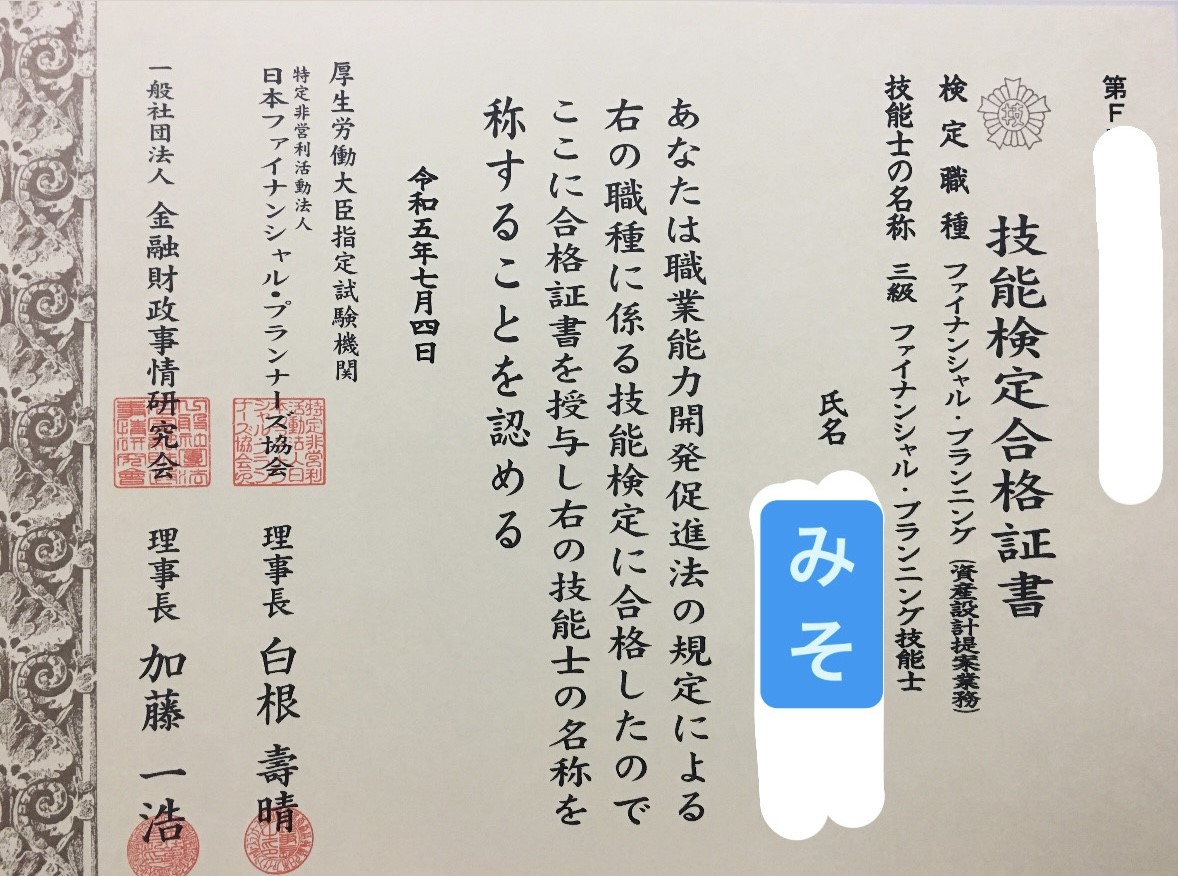 第F
技能検定合格証書
検定職種 ファイナンシャル・プランニング(資産設計提案業務)
技能士の名称 三級 ファイナンシャル・プランニング技能士
氏名 みそ
あなたは職業能力開発促進法の規定による
右の職種に係る技能検定に合格したので
ここに合格証書を授与し右の技能士の名称を
称することを認める
令和五年七月四日
厚生労働大臣指定試験機関
特定非営利活動法人
日本ファイナンシャル・プランナーズ協会 理事長 白根 壽晴
一般社団法人 金融財政事情研究会 理事長 加藤 一浩